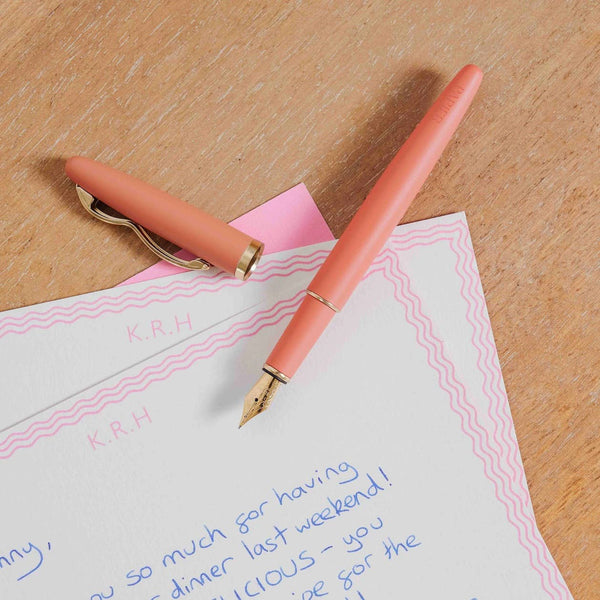 K.R.H
K.R.H
nny,
ou so much for having
dinner last weekend!
LICIOUS – you
pe for the